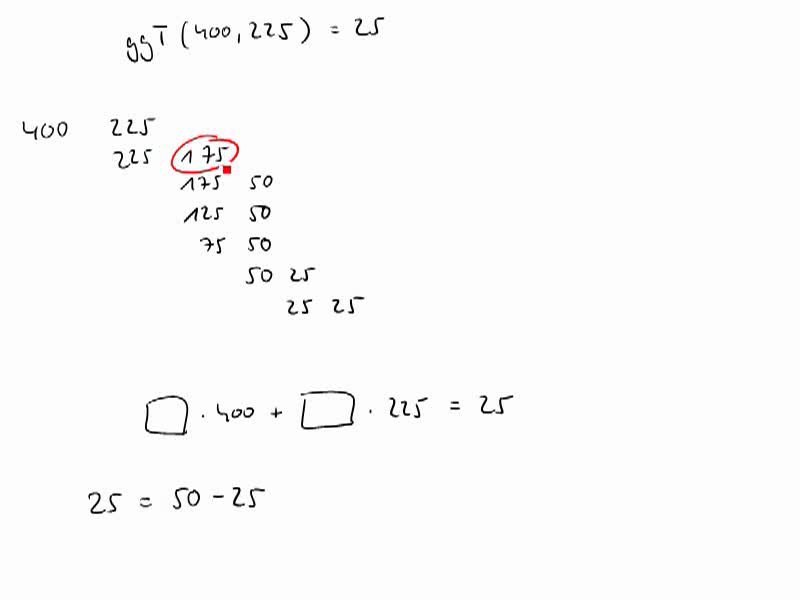 ggT (400, 225) = 25
400 225
225 175
175 50
125 50
75 50
50 25
25 25
□ · 400 + □ · 225 = 25
25 = 50 - 25